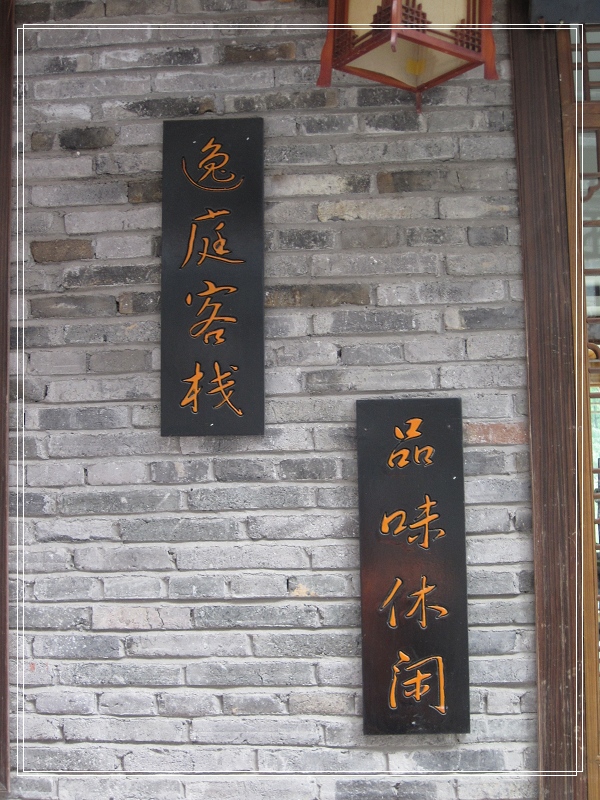 逸庭客栈
品味休闲